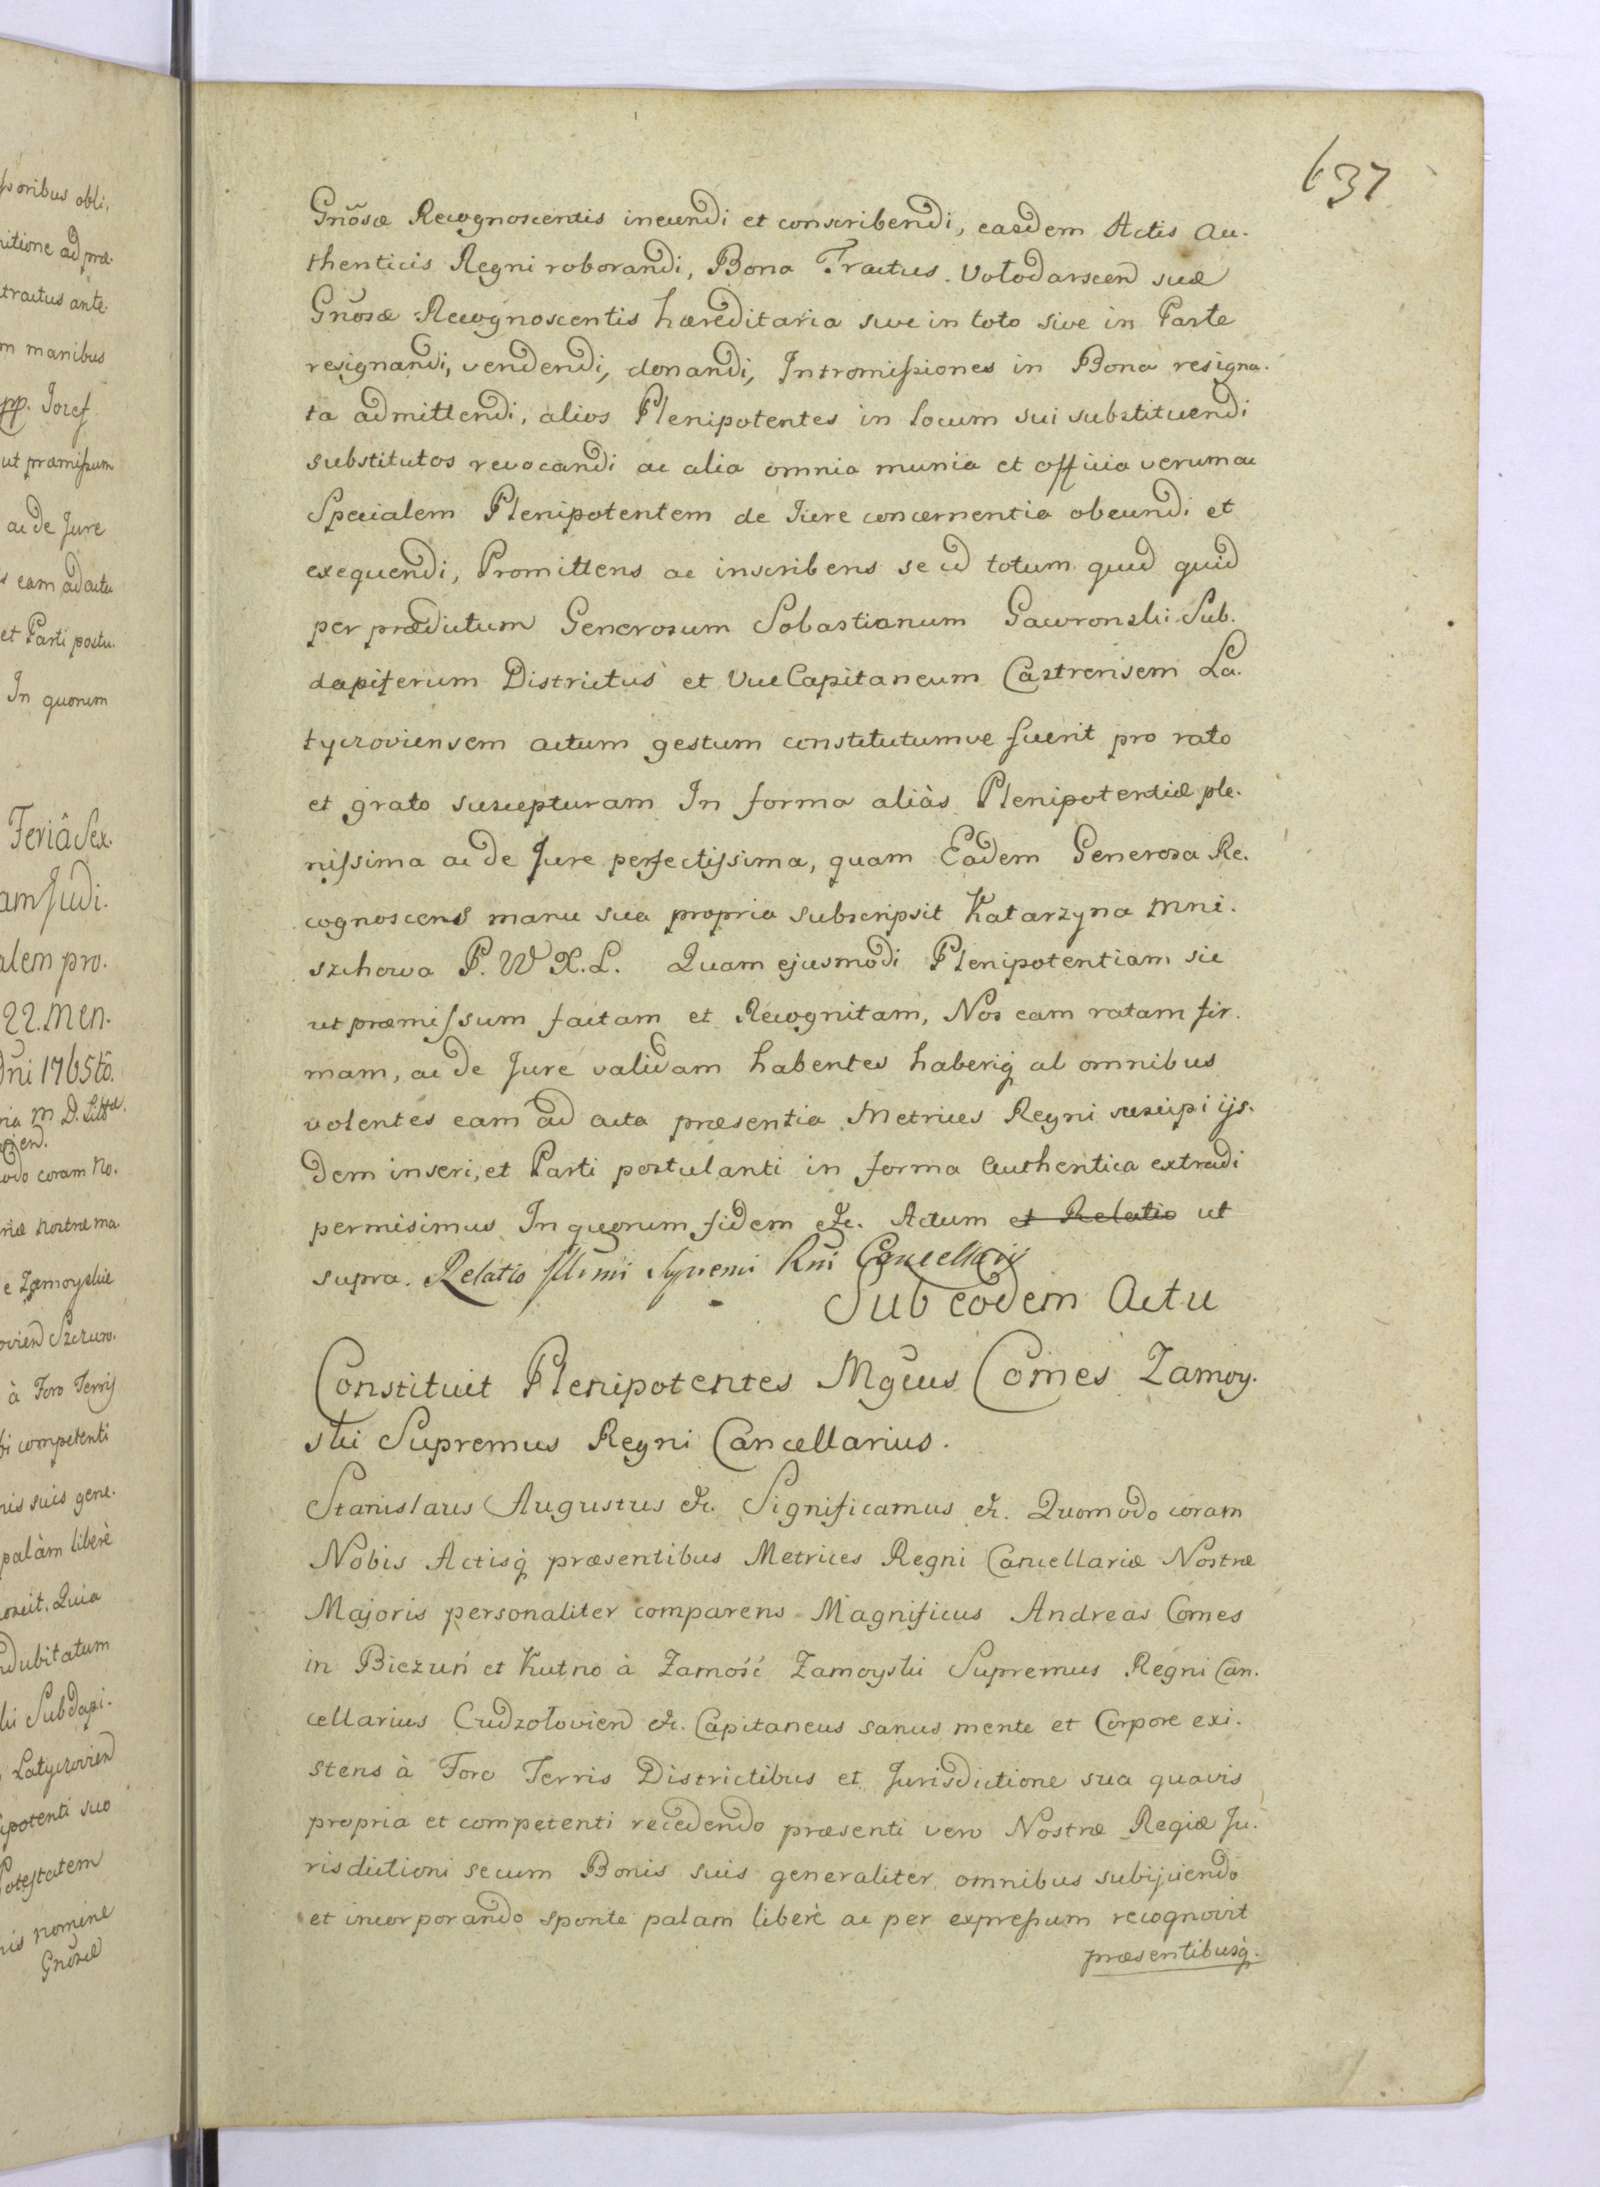 637
Gnõsæ Recognoscentis ineundi et conscribendi, easdem Actis Au.
thenticis Regni roborandi, Bona Tractus Volodarscen suæ
Gnõsæ Recognoscentis hæreditaria sive in toto sive in Parte
resignandi, vendendi, donandi, Intromissiones in Bona resigna.
ta admittendi, alios Plenipotentes in locum sui substituendi
substitutos revocandi ac alia omnia munia et officia verum ac
Specialem Plenipotentem de Jure concernentia obeundi et
exequendi, Promittens ac inscribens se id totum quid quid
per prædictum Generosum Sobastianum Gawronski Sub.
dapiferum Districtus et ViceCapitaneum Castrensem La.
tyczoviensem actum gestum constitutumve fuerit pro rato
et grato suscepturam In forma aliàs Plenipotentiæ ple.
nissima ac de Jure perfectissima, quam Eadem Generosa Re.
cognoscens manu sua propria subscripsit Katarzyna Mni.
szchowa P. W X. L. Quam ejusmodi Plenipotentiam sic
ut præmissum factam et Recognitam, Nos eam ratam fir.
mam, ac de Jure validam habentes haberiq́ ab omnibus
volentes eam ad acta præsentia Metrices Regni suscipi ijs.
dem inseri, et Parti postulanti in forma authentica extradi
permisimus In quorum fidem etc. Actum et Relatio ut
supra. Relatio Illmi Supremi Rni Cancellarij
Sub eodem Actu
Constituit Plenipotentes Mgcus Comes Zamoy.
ski Supremus Regni Cancellarius.
Stanislaus Augustus etc. Significamus etc. Quomodo coram
Nobis Actisq́ præsentibus Metrices Regni Cancellariæ Nostræ
Majoris personaliter comparens Magnificus Andreas Comes
in Biezuń et Kutno à Zamość Zamoyski Supremus Regni Can.
cellarius Cudzołovien etc. Capitaneus sanus mente et Corpore exi.
stens à Foro Terris Districtibus et Jurisdictione sua quavis
propria et competenti recedendo præsenti vero Nostræ Regiæ Ju.
risdictioni se cum Bonis suis generaliter omnibus subijciendo
et incorporando sponte palam liberè ac per expressum recognovit
præsentibusq́.
ssoribus obli.
nitione ad præ.
tractus ante.
m manibus
pp. Jozef
ut præmissum
ac de Jure
s eam ad acta
et Parti postu.
In quorum
Feriâ Sex.
am Judi.
alem pro.
22. Men.
Dni 1765tô.
odo coram No.
riæ nostræ ma
e Zamoyskie
ovien Szczuro.
à Foro Terris
bi competenti
nis suis gene.
palàm liberè
noscit. Quia
ndubitatum
ki Subdapi.
Latyczovien
ipotenti suo
Potestatem
nis nomine
Gnõsæ